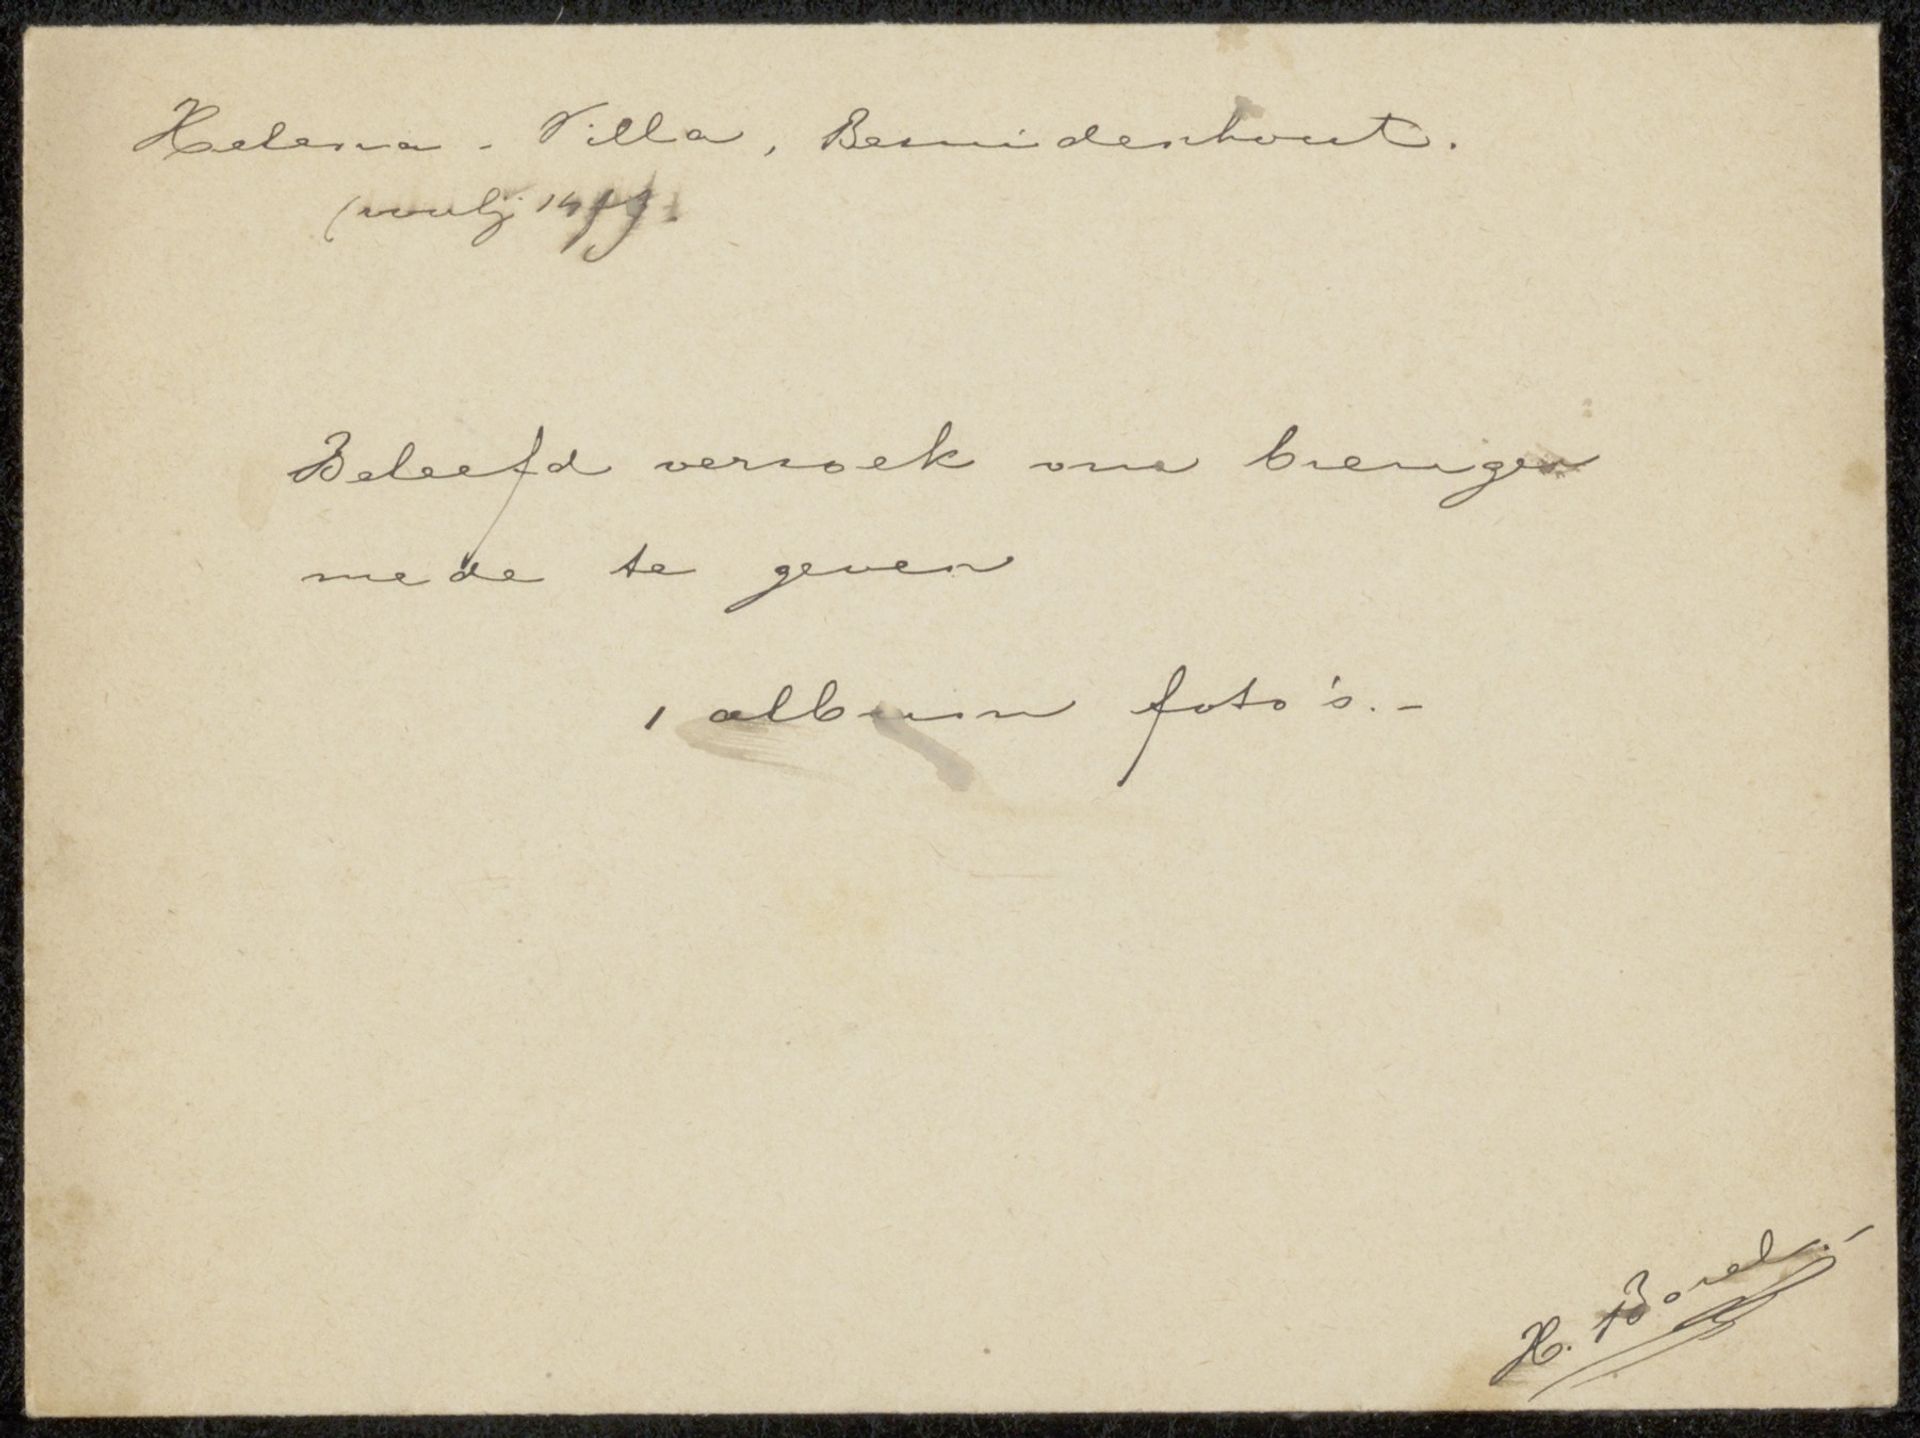 Helena-Villa, Bezuidenhout.
Beleefd verzoek om brenger
mede te geven
1 album foto's.-
H. Borel.